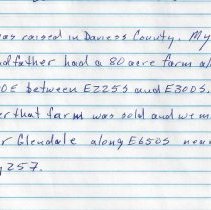 was raised in Daviess County. My
father had a 80 acre farm
between E225S and E300S.
that farm was sold and we
Glendale along E650S
257.